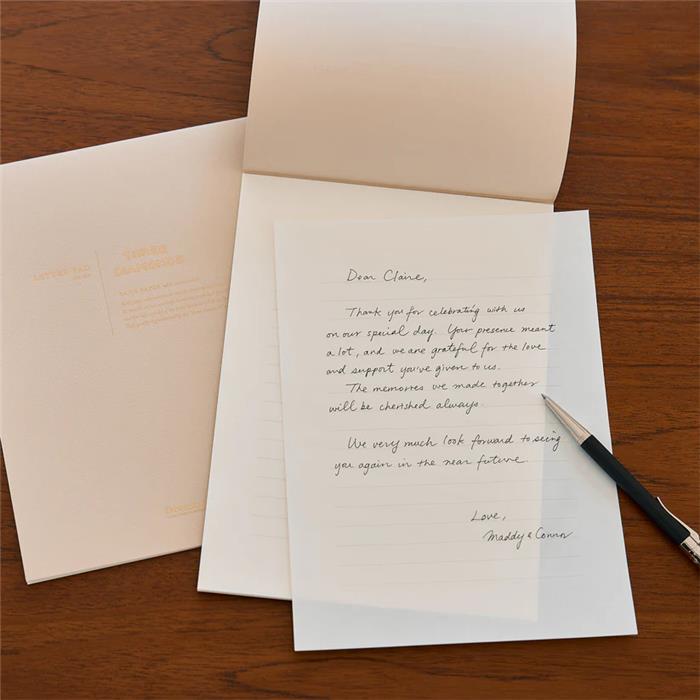 LETTER PAD
Dear Claire,
Thank you for celebrating with us
on our special day. Your presence meant
a lot, and we are grateful for the love
and support you've given to us.
The memories we made together
will be cherished always.
We very much look forward to seeing
you again in the near future.
Love,
Maddy & Connor